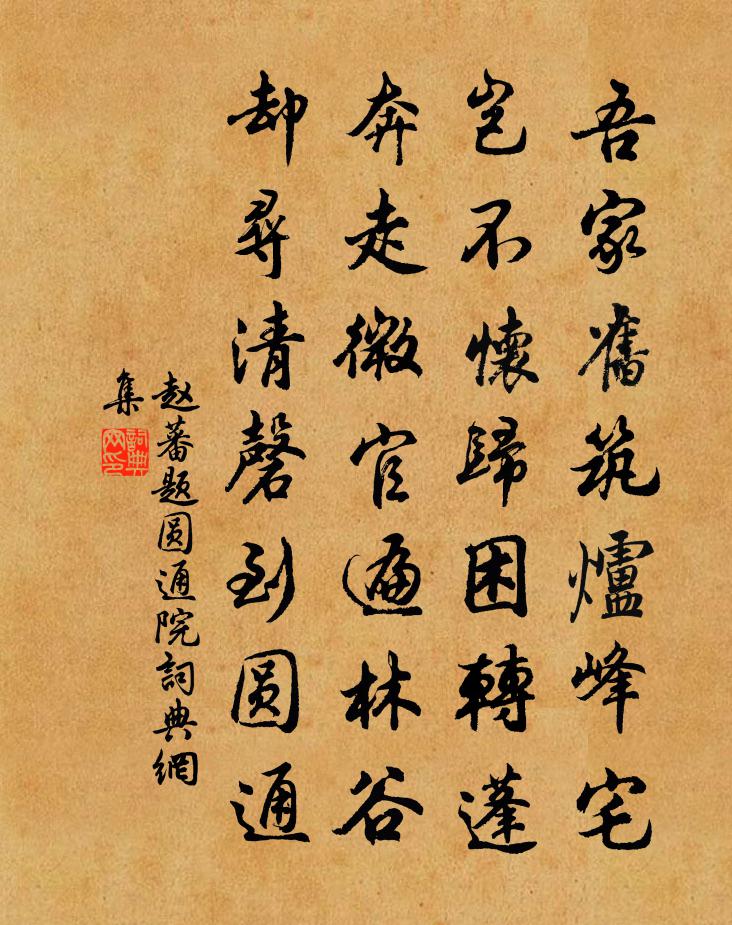 吾家舊筑爐峰宅
豈不懷歸困轉蓬
奔走微官遍林谷
却尋清磬到圓通
赵蕃題圓通院詞典網
集
詞典網印